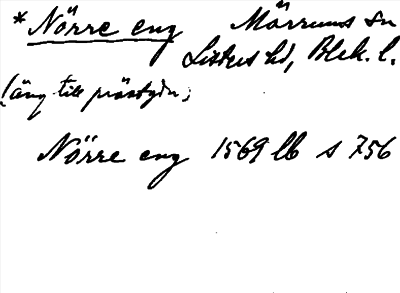 *Nörre eng Mörrums sn
Listers hd, Blek. l.
(äng till prästgdn;
Nörre eng 1569 lb s 756